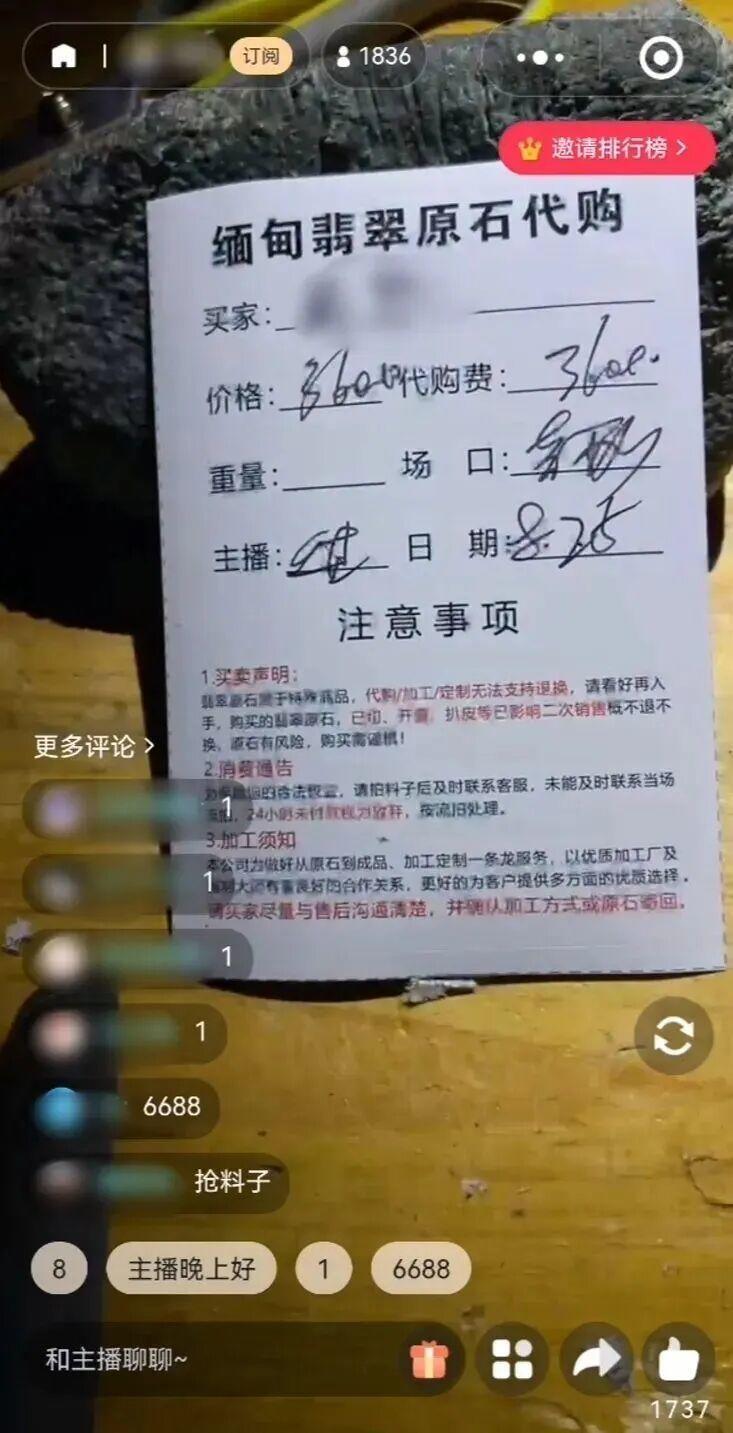 订阅
1836
邀请排行榜
缅甸翡翠原石代购
买家:
价格: 代购费:
重量: 场口:
主播: 日期: 8.25
注意事项
1.买卖声明:
翡翠原石属于特殊商品，代购/加工/定制无法支持退换，请看好再入
手，购买的翡翠原石，已切、开窗、扒皮等已影响二次销售概不退不
换，原石有风险，购买需谨慎！
2.消费通告
请拍料子后及时联系客服，未能及时联系当场
24小时未付款视为放弃，按流拍处理。
3.加工须知
本公司为做好从原石到成品、加工定制一条龙服务，以优质加工厂及
大师有着良好的合作关系，更好的为客户提供多方面的优质选择。
请买家尽量与售后沟通清楚，并确认加工方式或原石寄回。
更多评论
1
1
1
1
6688
抢料子
8 主播晚上好 1 6688
和主播聊聊~
1737